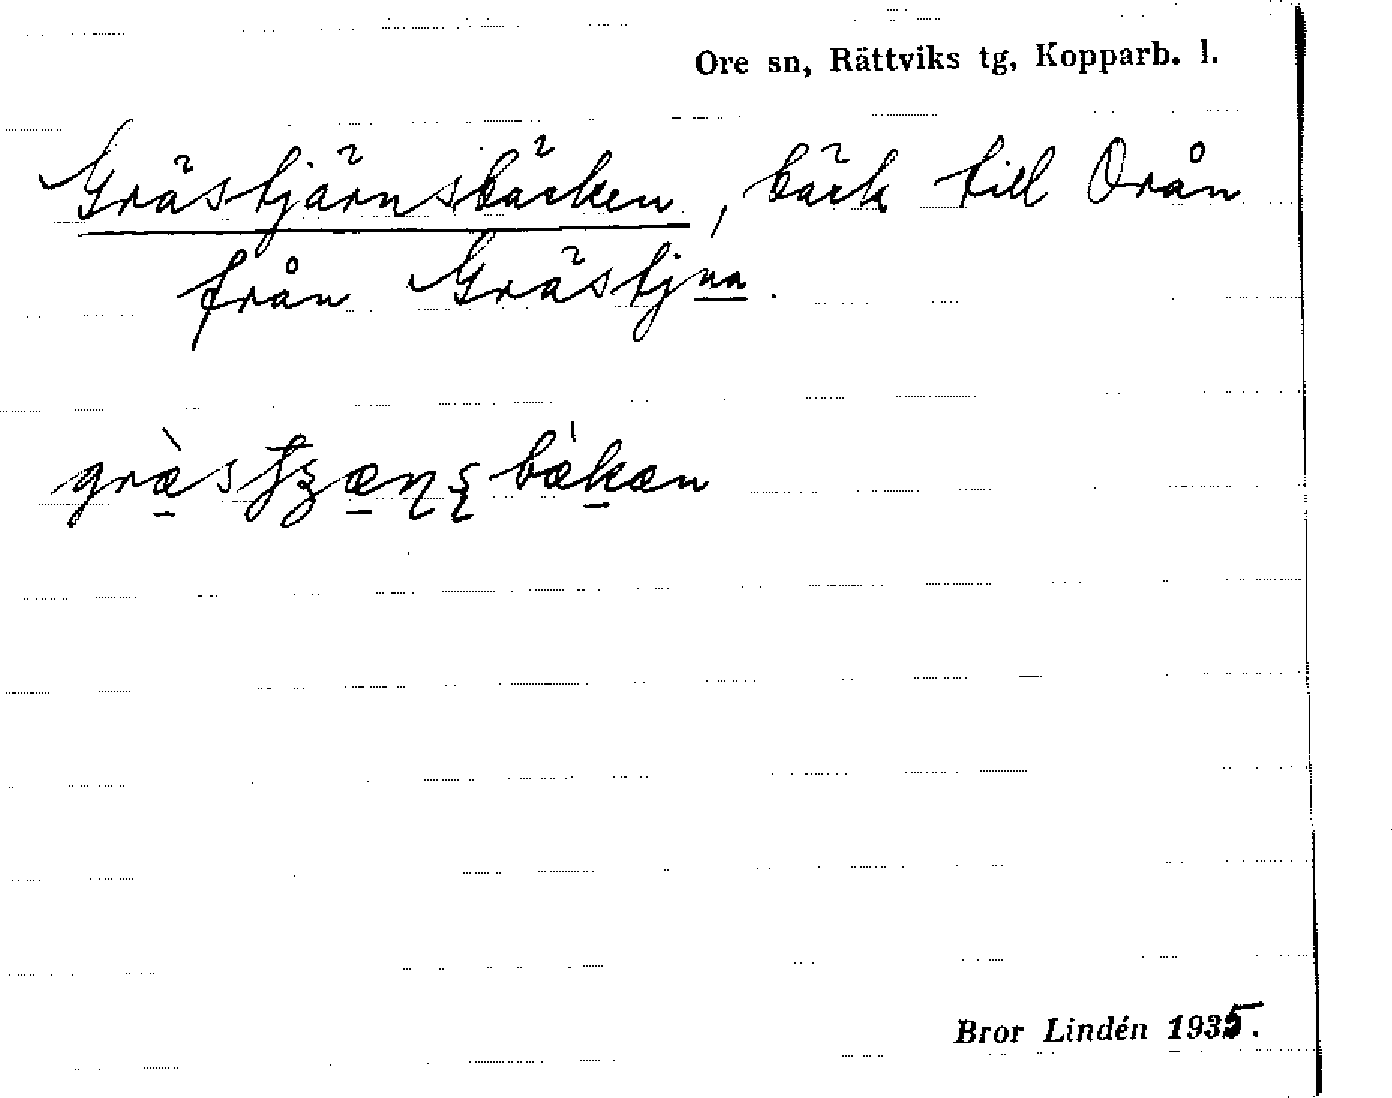 Ore sn, Rättviks tg, Kopparb. l.
Grästjärnsbäcken, bäck till Orån
från Grästjnn.
Bror Lindén 1935.